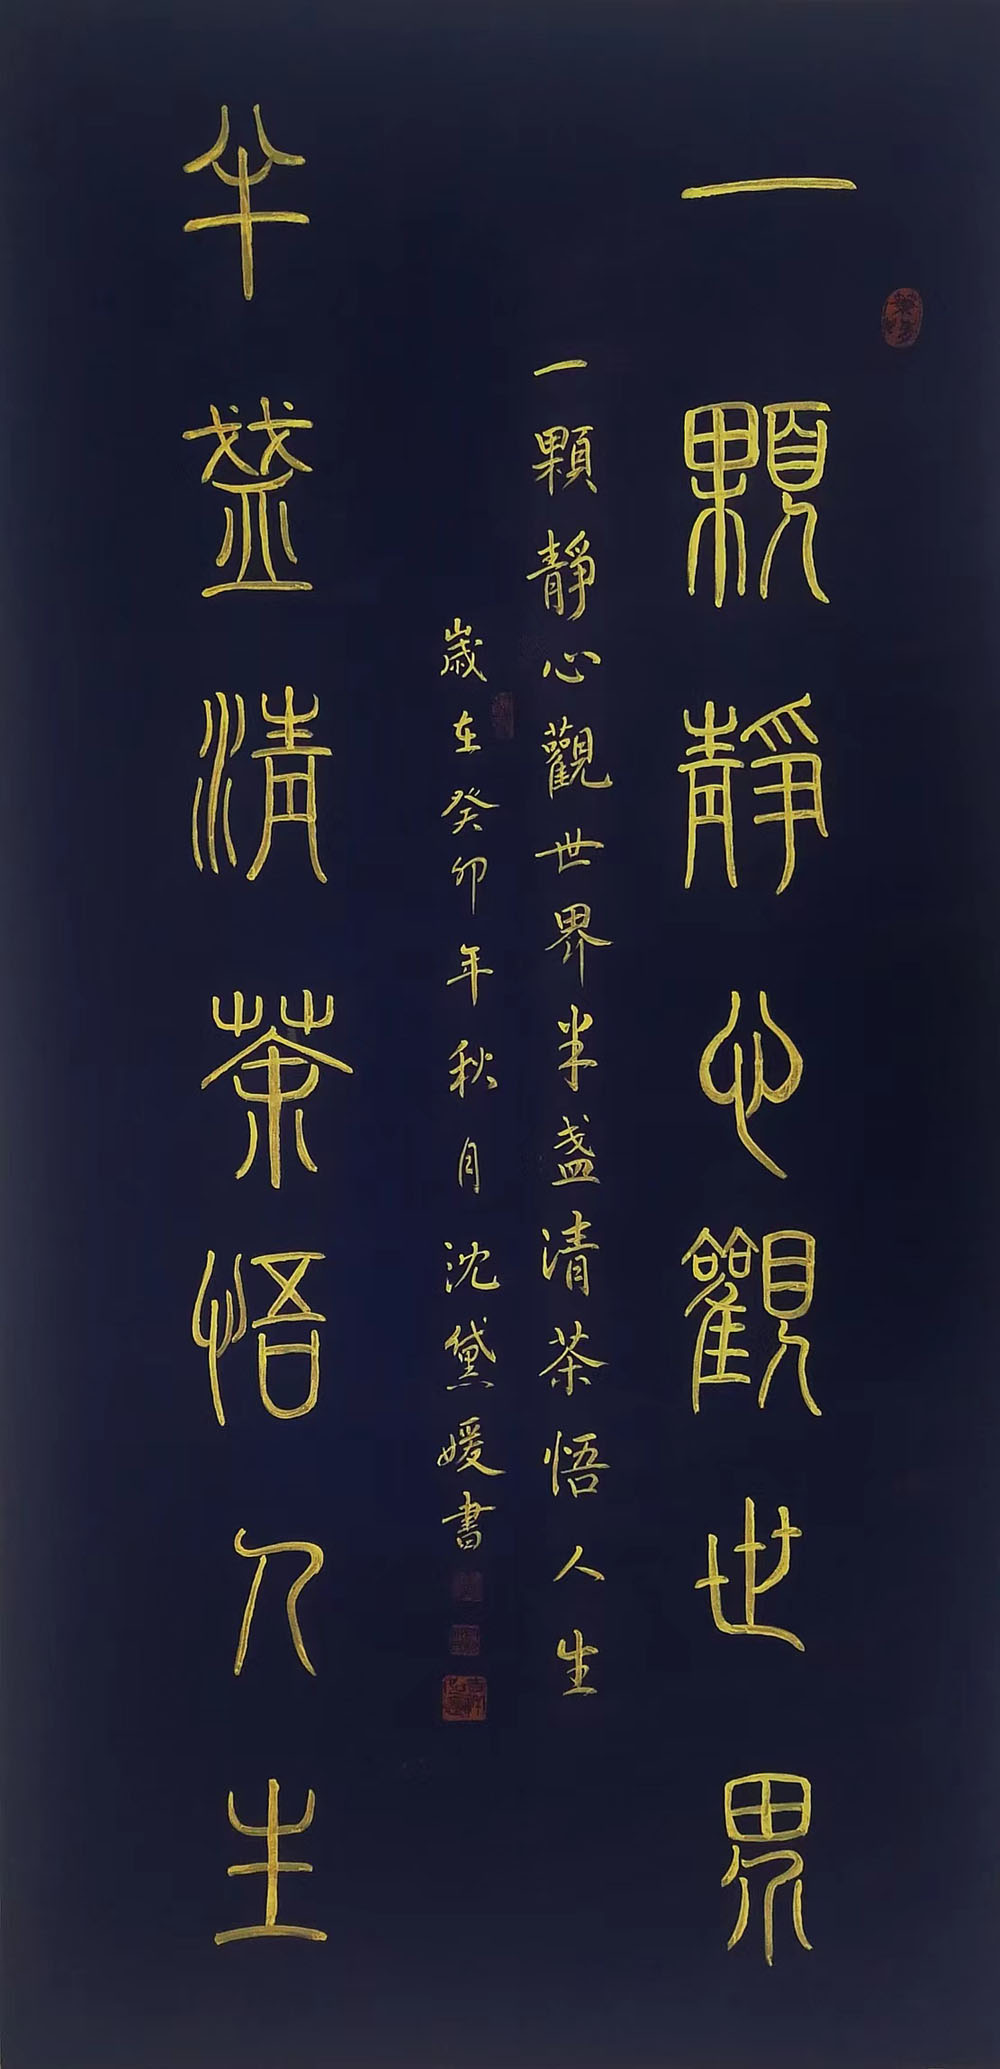 一顆靜心觀世界
一顆靜心觀世界半盞清茶悟人生
歲在癸卯年秋月沈黛媛書
半盞清茶悟人生